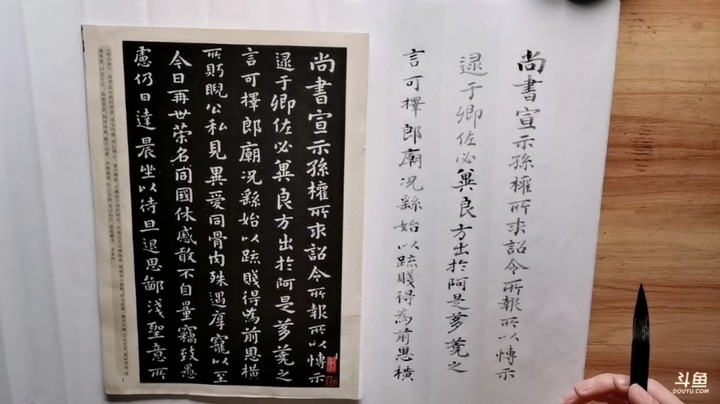 尚書宣示孫權所求詔令所報所以博示
逮于卿佐必冀良方出於阿是芻蕘之
言可擇郎廟況繇始以疏賤得為前恩橫
所眄睨公私見異愛同骨肉殊遇厚寵以至
今日再世榮名同國休慼敢不自量竊致愚
慮仍日達晨坐以待旦退思鄙淺聖意所
尚書宣示孫權所求詔令所報所以博示
逮于卿佐必冀良方出於阿是芻蕘之
言可擇郎廟況繇始以疏賤得為前恩橫
斗鱼
DOUYU.COM